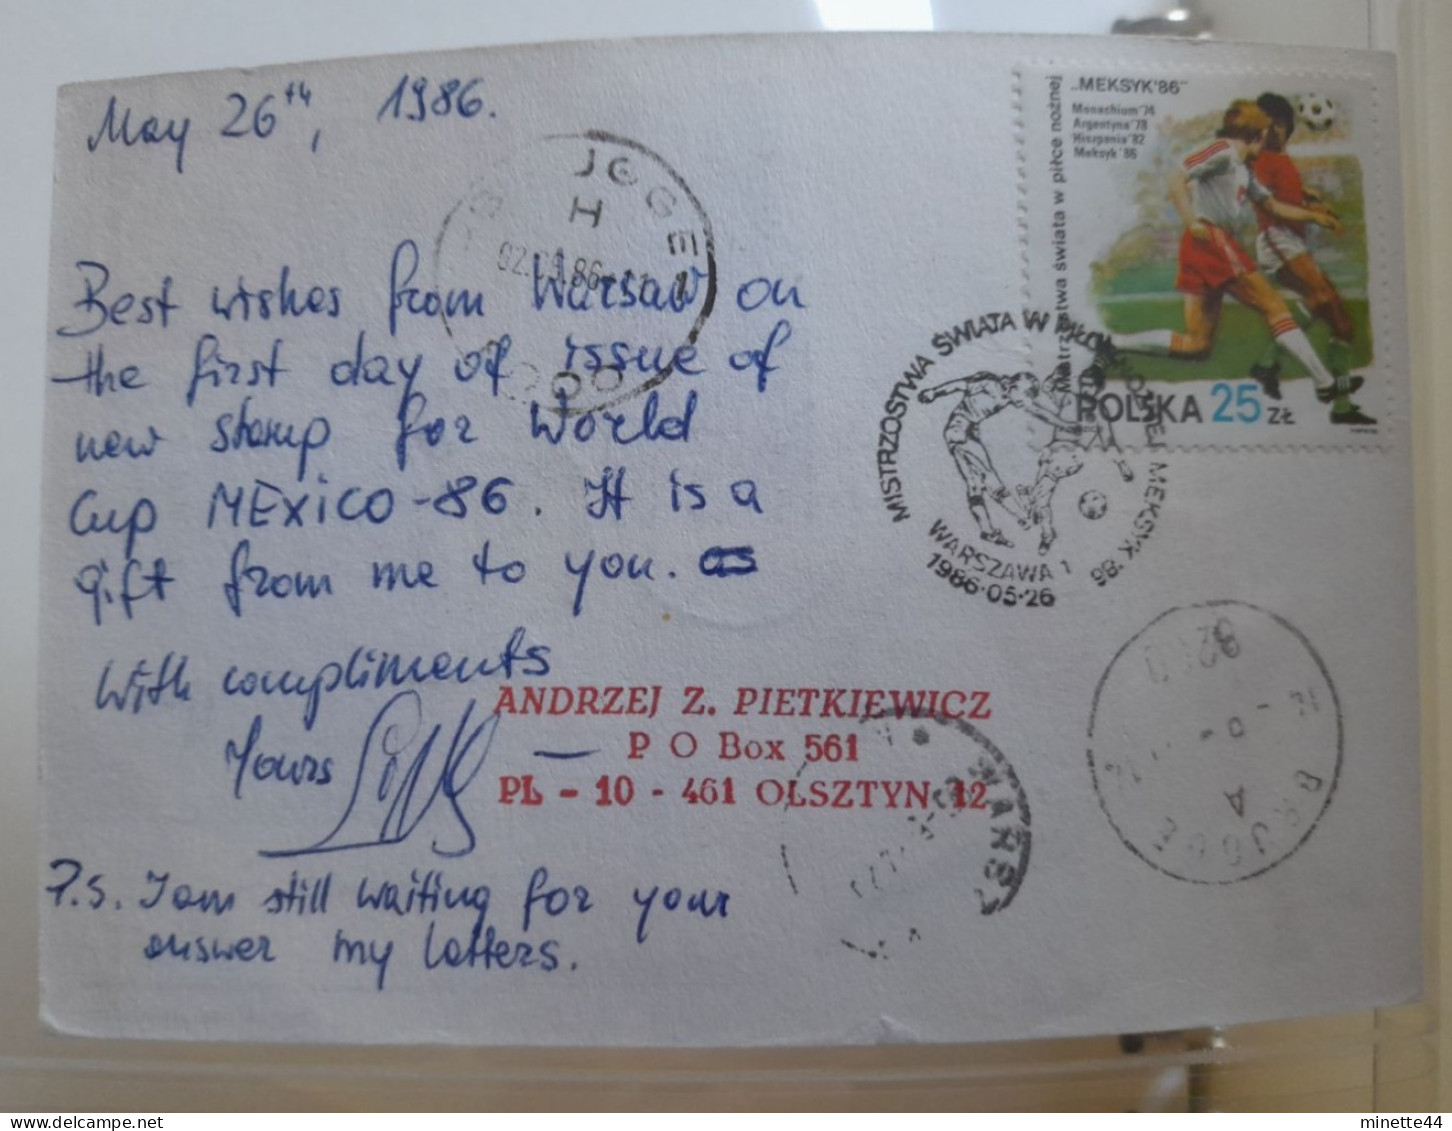 May 26th, 1986.
Best wishes from Warsaw on
the first day of issue of
new stamp for World
Cup MEXICO-86. It is a
gift from me to you.
With compliments
Yours
P.S. I am still waiting for your
answer my letters.
ANDRZEJ Z. PIETKIEWICZ
P O Box 561
PL - 10 - 461 OLSZTYN 12
„MEKSYK'86"
Monachium'74
Argentyna'78
Hiszpania'82
Meksyk'86
Mistrzostwa świata w piłce nożnej
POLSKA 25 ZŁ
MISTRZOSTWA ŚWIATA W PIŁCE NOŻNEJ MEKSYK '86
WARSZAWA 1
1986-05-26
H
BRUGGE
A
minette44